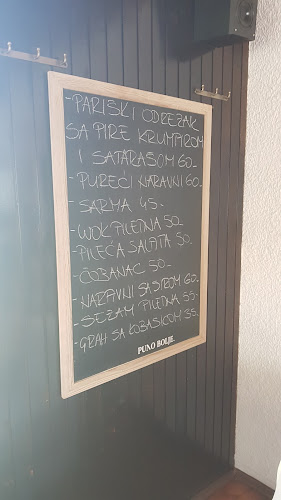 - PARIŠKI ODREZAK
SA PIRE KRUMPIROM
I SATARAŠOM 60.-
- PUREĆI NARAVNI 60.-
- SARMA 45.-
- WOK PILETINA 50.-
- PILEĆA SALATA 50.-
- ČOBANAC 50.-
- NARAVNI SA SIROM 60.-
- SEZAM PILETINA 55.-
- GRAH SA KOBASICOM 35.-
PUNO BOLJE.